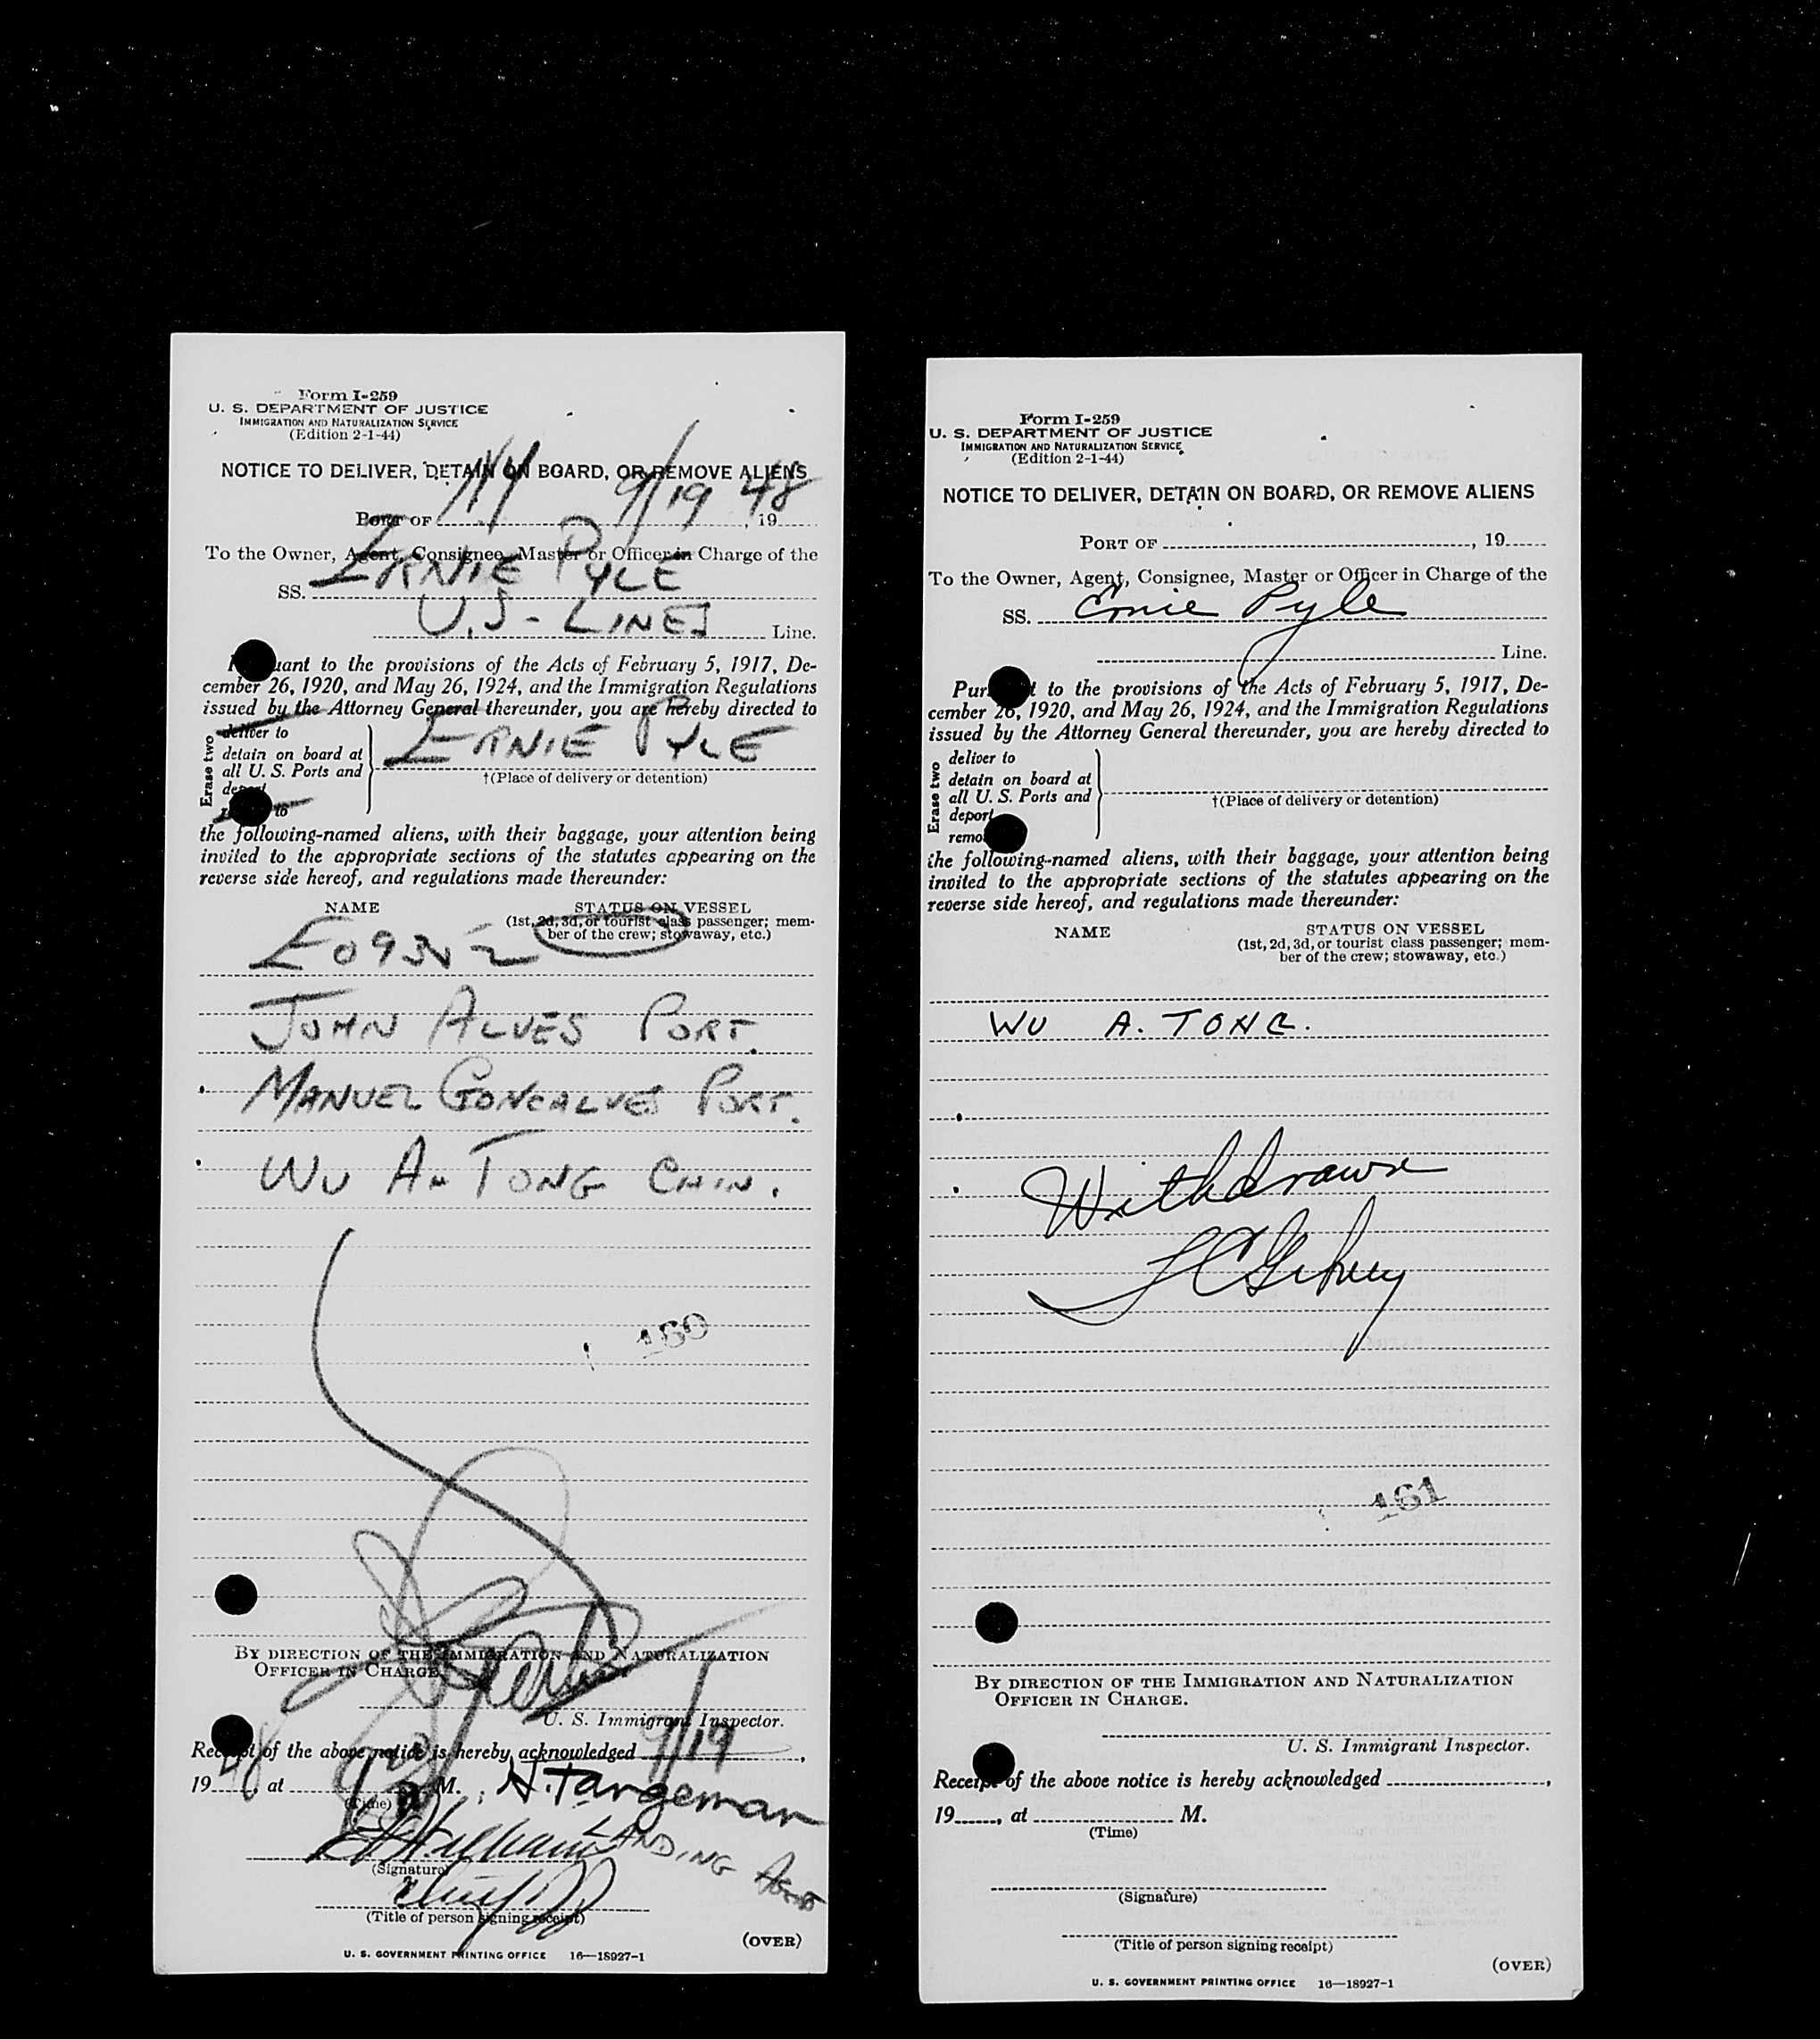 Form I-259
U. S. DEPARTMENT OF JUSTICE
IMMIGRATION AND NATURALIZATION SERVICE
(Edition 2-1-44)
NOTICE TO DELIVER, DETAIN ON BOARD, OR REMOVE ALIENS
PORT OF NY 9/19, 1948
To the Owner, Agent, Consignee, Master or Officer in Charge of the
SS. ERNIE PYLE
U.S - LINES Line.
Pursuant to the provisions of the Acts of February 5, 1917, De-
cember 26, 1920, and May 26, 1924, and the Immigration Regulations
issued by the Attorney General thereunder, you are hereby directed to
Erase two
deliver to
detain on board at
all U. S. Ports and
deport
to
ERNIE PYLE
†(Place of delivery or detention)
the following-named aliens, with their baggage, your attention being
invited to the appropriate sections of the statutes appearing on the
reverse side hereof, and regulations made thereunder:
NAME STATUS ON VESSEL
(1st, 2d, 3d, or tourist class passenger; mem-
ber of the crew; stowaway, etc.)
JOHN ALVES PORT.
MANUEL GONCALVES PORT.
WU AH TONG CHIN.
160
BY DIRECTION OF THE IMMIGRATION AND NATURALIZATION
OFFICER IN CHARGE.
U. S. Immigrant Inspector.
Receipt of the above notice is hereby acknowledged 9/19,
1948, at M. H. Targeman
(Time)
LANDING AGENT
(Signature)
(Title of person signing receipt)
(OVER)
U. S. GOVERNMENT PRINTING OFFICE 16—18927-1
Form I-259
U. S. DEPARTMENT OF JUSTICE
IMMIGRATION AND NATURALIZATION SERVICE
(Edition 2-1-44)
NOTICE TO DELIVER, DETAIN ON BOARD, OR REMOVE ALIENS
PORT OF , 19
To the Owner, Agent, Consignee, Master or Officer in Charge of the
SS. Ernie Pyle
Line.
Pursuant to the provisions of the Acts of February 5, 1917, De-
cember 26, 1920, and May 26, 1924, and the Immigration Regulations
issued by the Attorney General thereunder, you are hereby directed to
Erase two
deliver to
detain on board at
all U. S. Ports and
deport
remo
†(Place of delivery or detention)
the following-named aliens, with their baggage, your attention being
invited to the appropriate sections of the statutes appearing on the
reverse side hereof, and regulations made thereunder:
NAME STATUS ON VESSEL
(1st, 2d, 3d, or tourist class passenger; mem-
ber of the crew; stowaway, etc.)
WU A. TONG.
Withdrawn
161
BY DIRECTION OF THE IMMIGRATION AND NATURALIZATION
OFFICER IN CHARGE.
U. S. Immigrant Inspector.
Receipt of the above notice is hereby acknowledged ,
19 , at M.
(Time)
(Signature)
(Title of person signing receipt)
(OVER)
U. S. GOVERNMENT PRINTING OFFICE 16—18927-1